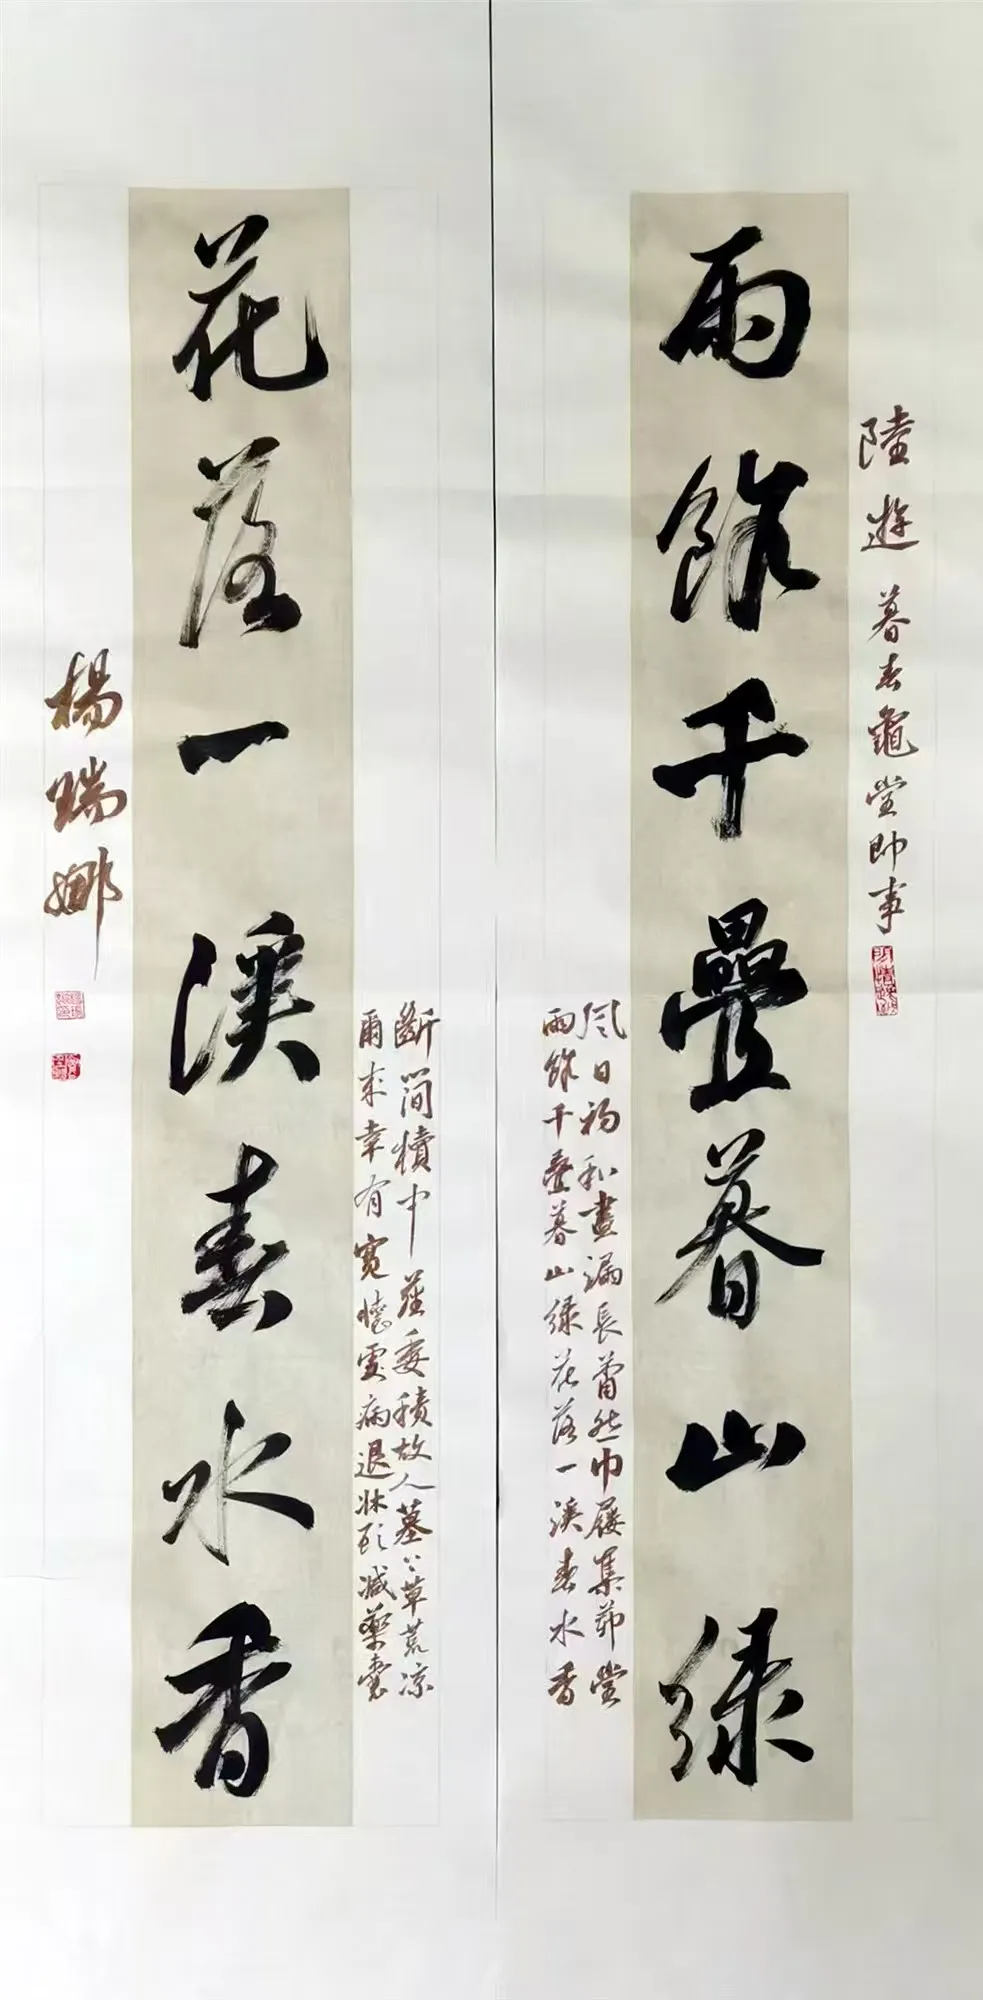 陸遊 暮春龜堂即事
雨餘千疊暮山綠
風日初和晝漏長蕭然巾屨集茆堂
雨餘千疊暮山綠花落一溪春水香
斷簡牘中塵委積故人墓上草荒涼
爾來幸有寬懷處病退牀頭減藥囊
花落一溪春水香
楊瑞娜